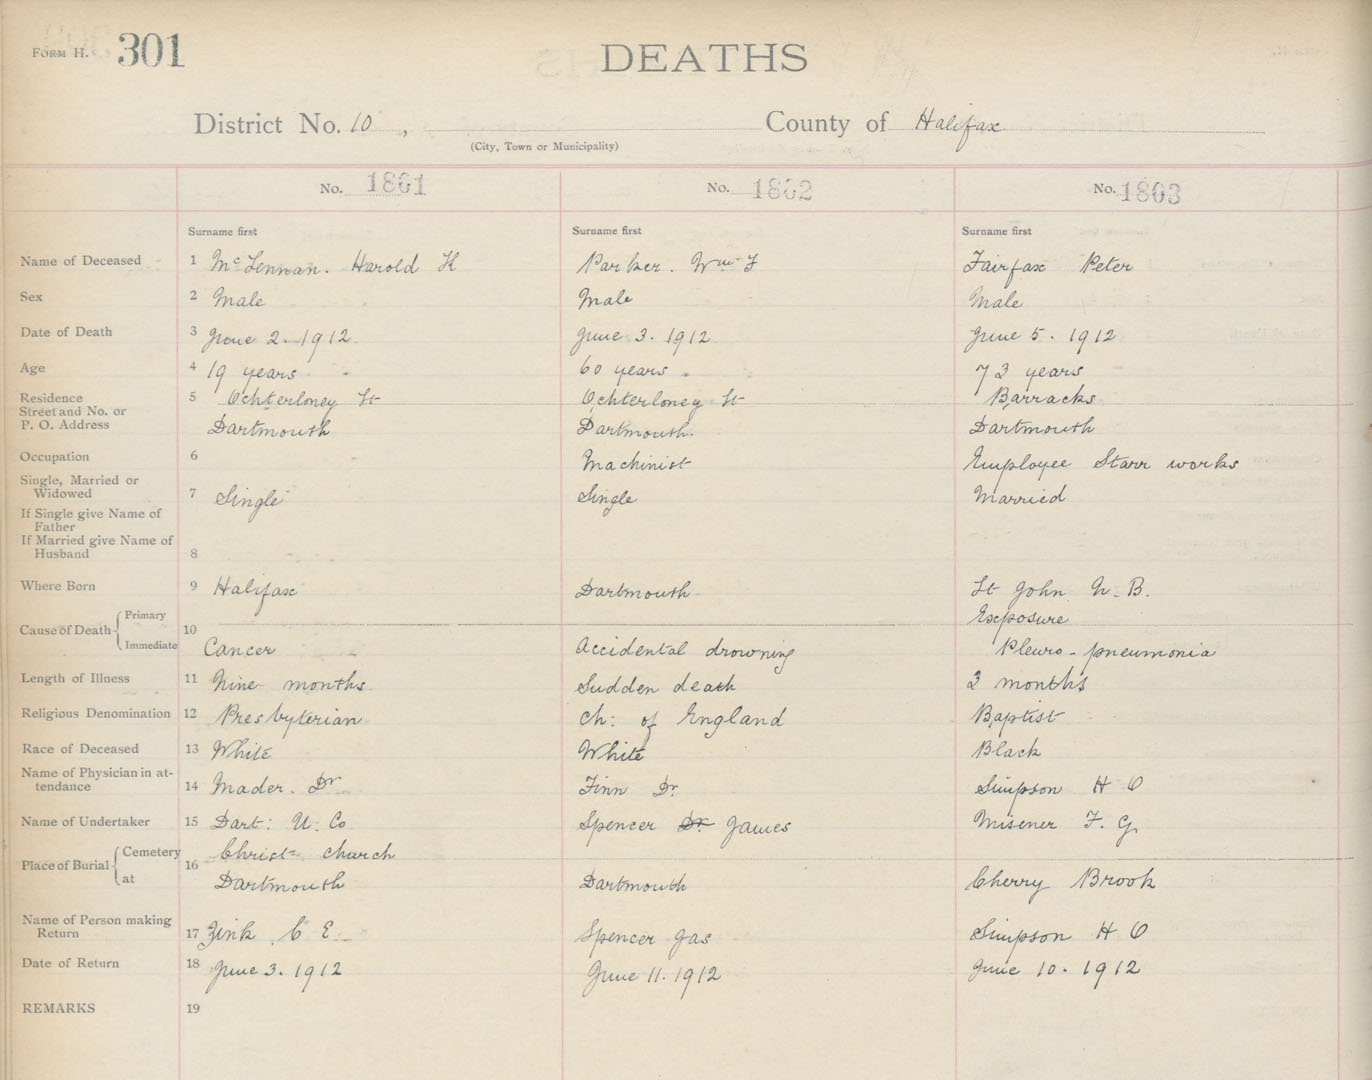 FORM H. 301
DEATHS
District No. 10 , County of Halifax
(City, Town or Municipality)
No. 1801 No. 1802 No. 1803
Surname first Surname first Surname first
Name of Deceased 1 McLennan. Harold K Parker. Wm F Fairfax Peter
Sex 2 Male Male Male
Date of Death 3 June 2. 1912 June 3. 1912 June 5. 1912
Age 4 19 years 60 years 73 years
Residence 5 Ochterloney St Ochterloney St Barracks
Street and No. or
P. O. Address Dartmouth Dartmouth. Dartmouth
Occupation 6 Machinist Employee Starr works
Single, Married or
Widowed 7 Single Single Married
If Single give Name of
Father
If Married give Name of
Husband 8
Where Born 9 Halifax Dartmouth St John N. B.
Primary Exposure
Cause of Death 10
Immediate Cancer Accidental drowning Pleuro-pneumonia
Length of Illness 11 Nine months Sudden death 2 months
Religious Denomination 12 Presbyterian Ch: of England Baptist
Race of Deceased 13 White White Black
Name of Physician in at-
tendance 14 Mader. Dr Finn Dr. Simpson H O
Name of Undertaker 15 Dart: U. Co Spencer Dr James Misener F. G.
Cemetery Christ church
Place of Burial 16
at Dartmouth Dartmouth Cherry Brook
Name of Person making
Return 17 Zink C E Spencer Jas Simpson H O
Date of Return 18 June 3. 1912 June 11. 1912 June 10. 1912
REMARKS 19